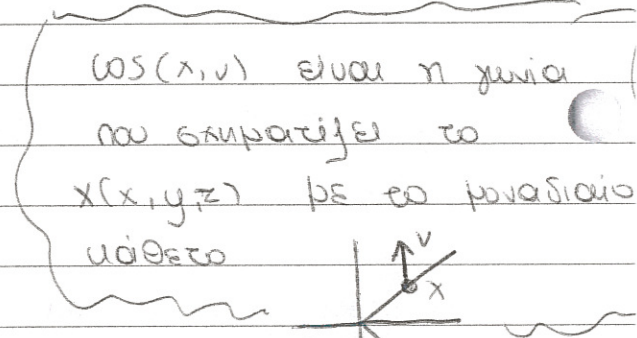 cos(x,ν) είναι η γωνία
που σχηματίζει το
x(x,y,z) με το μοναδιαίο
κάθετο
ν
x